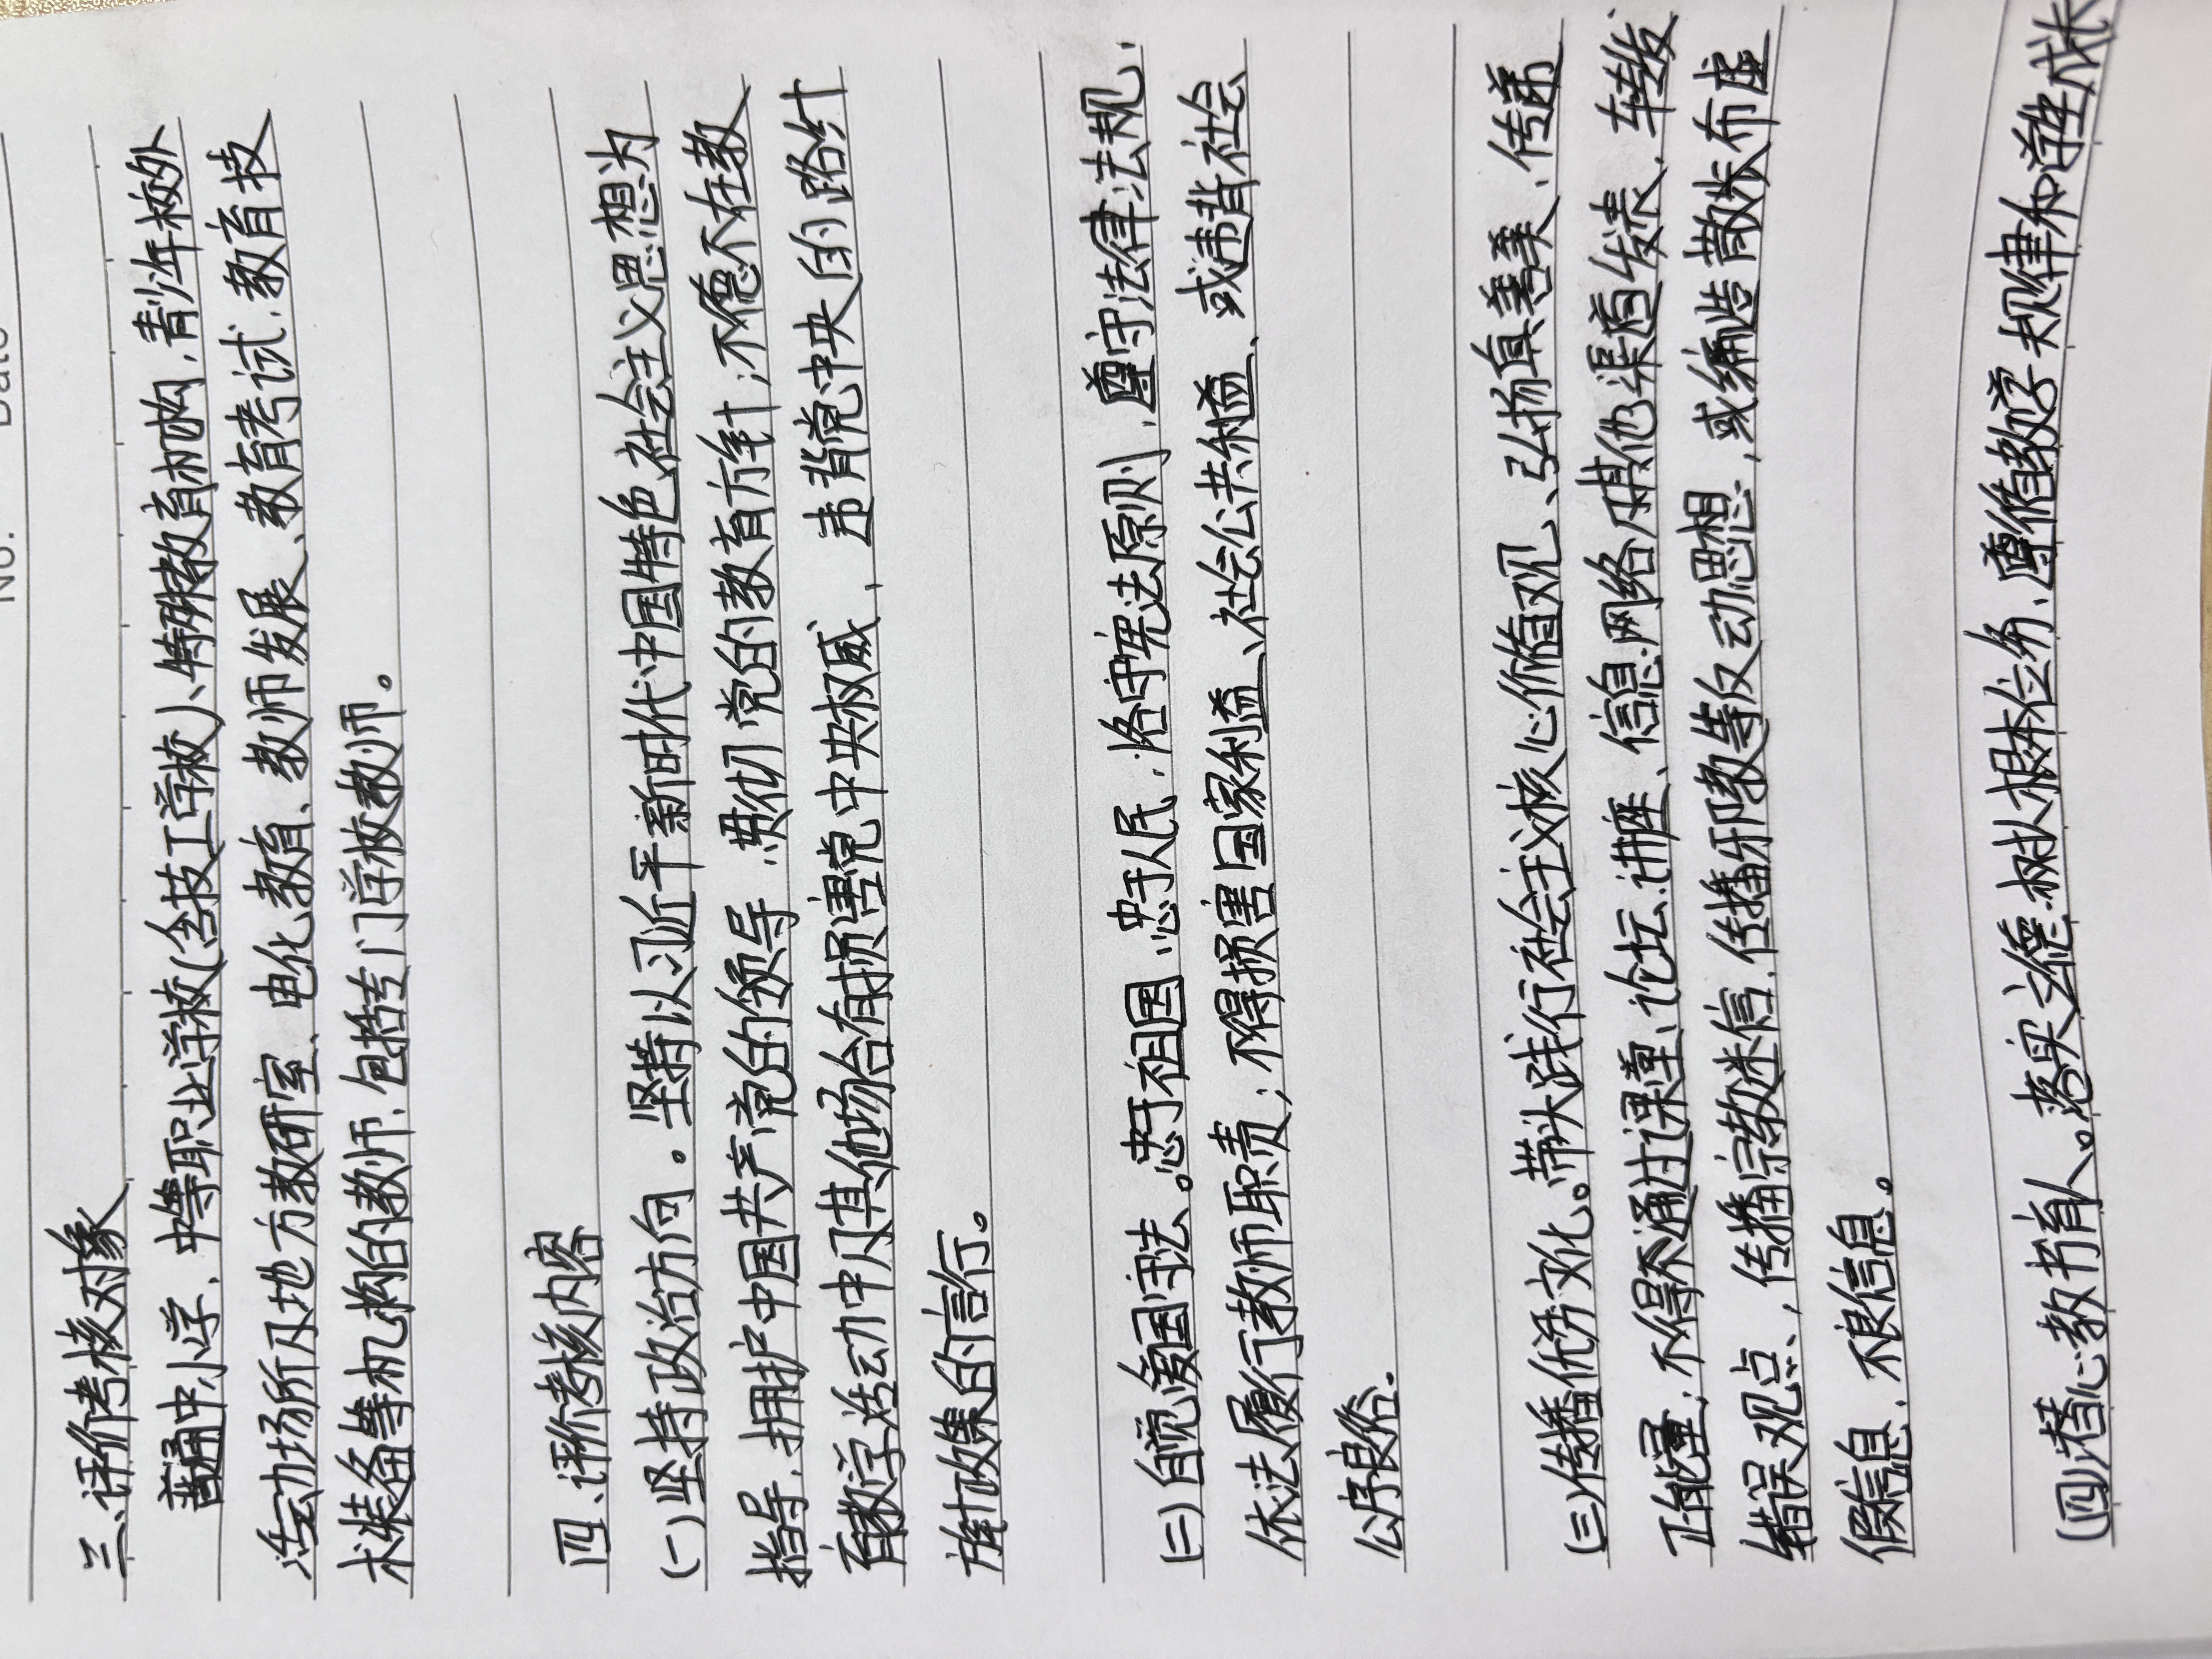 No.
Date
三、评价考核对象
普通中小学、中等职业学校(含技工学校)、特殊教育机构、青少年校外
活动场所及地方教研室、电化教育、教师发展、教育考试、教育技
术装备等机构的教师,包括专门学校教师。
四、评价考核内容
(一)坚持政治方向。坚持以习近平新时代中国特色社会主义思想为
指导,拥护中国共产党的领导,贯彻党的教育方针;不德不在教
育教学活动中及其他场合有损害党中央权威、违背党中央的路线
方针政策的言行。
(二)自觉爱国守法。忠于祖国,忠于人民,恪守宪法原则,遵守法律法规,
依法履行教师职责;不得损害国家利益、社会公共利益、或违背社会
公序良俗。
(三)传播优秀文化。带头践行社会主义核心价值观、弘扬真善美、传递
正能量;不得不通过课堂、论坛、讲座、信息网络及其他渠道发表、转发
错误观点、传播宗教迷信、传播邪教等反动思想,或编造散步布虚
假信息、不良信息。
(四)潜心教书育人。落实立德树人根本任务,遵循教学规律和学生成长